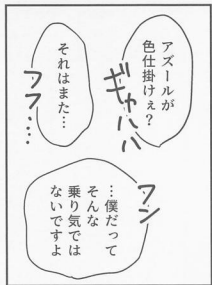 アズールが
色仕掛けぇ？
ギャハハ
それはまた…
フフ…
フン
…僕だって
そんな
乗り気では
ないですよ